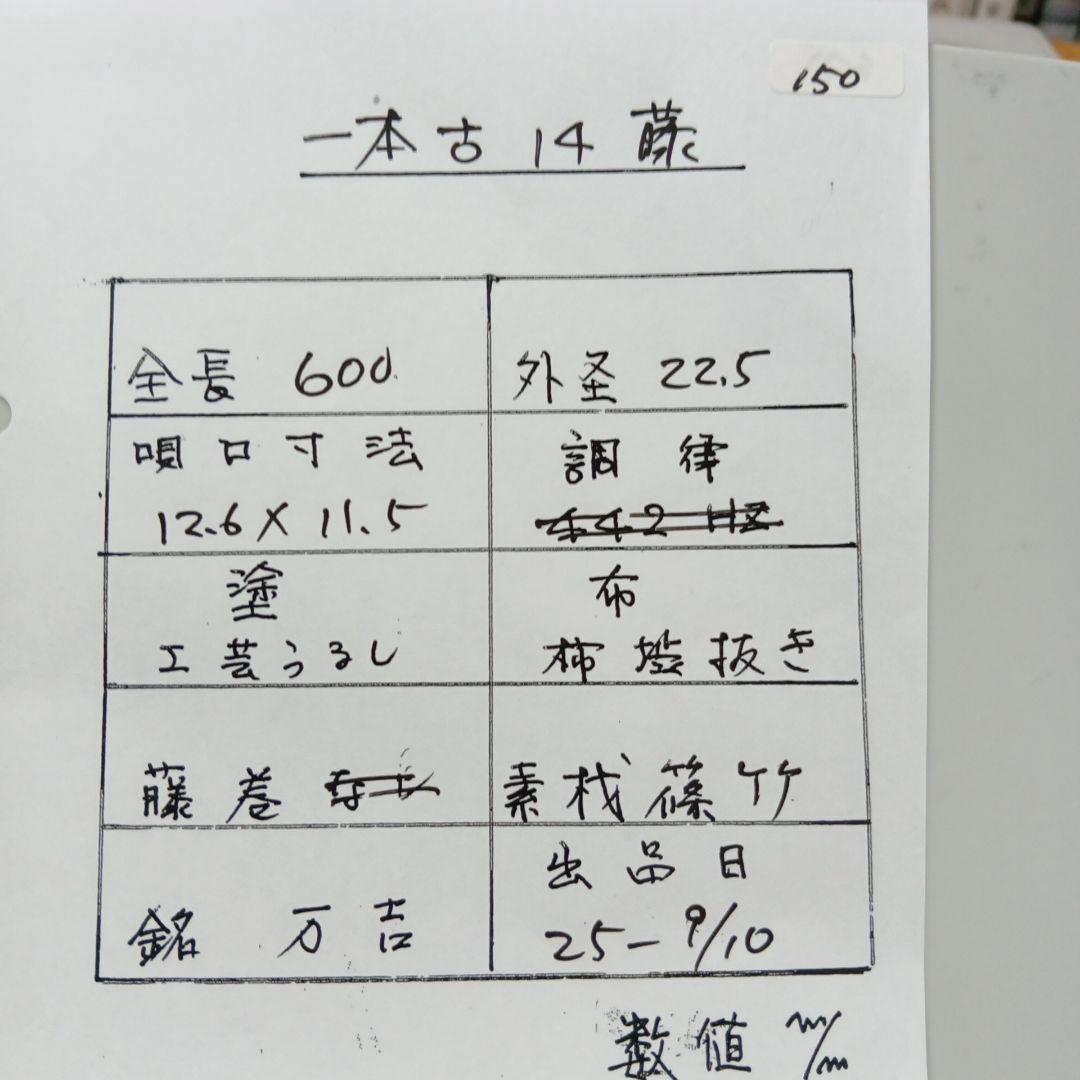 150
一本古 14 藤
全長 600
外圣 22.5
唄口寸法
12.6 X 11.5
調律
442 HZ
塗
工芸うるし
布
柿渋抜き
藤巻 なし
素材 篠竹
銘 万吉
出品日
25-9/10
数値 m/m